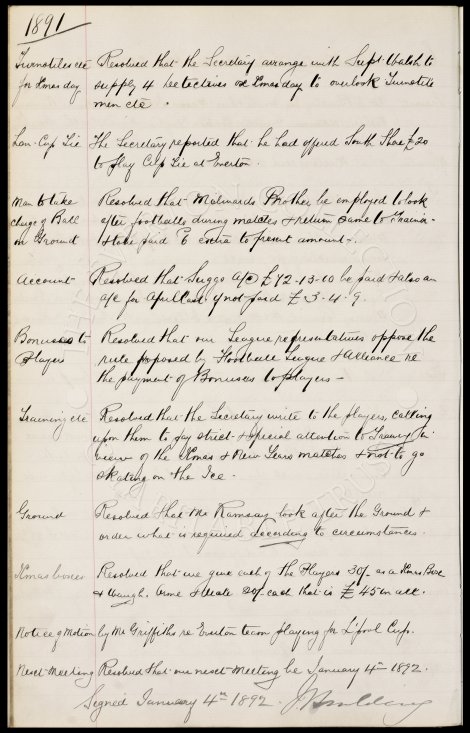 1891
Turnstiles etc Resolved that the Secretary arrange with Supt Walsh to
for Xmas day supply 4 Detectives on Xmas day to overlook Turnstile
men etc.
Lan. Cup Tie The Secretary reported that he had offered South Shore £20
to play Cup Tie at Everton.
Man to take Resolved that Milwards Brother be employed to look
charge of Ball after footballs during matches & return same to Trainer
on Ground & to be paid extra to present amount.
Account Resolved that Suggs a/c £72-13-10 be paid & also an
a/c for April last if not paid £3-4-9.
Bonuses to Resolved that our League representatives oppose the
Players rule proposed by Football League & Alliance re
the payment of Bonuses to players -
Training etc Resolved that the Secretary write to the players, calling
upon them to pay strict & special attention to Training in
view of the Xmas & New Years matches & not to go
skating on the Ice.
Ground Resolved that Mr Ramsay look after the Ground &
order what is required According to circumstances.
Xmas boxes Resolved that we give each of the Players 30/- as a Xmas Box
& Waugh. 20/- each that is £45 in all.
Notice of Motion by Mr Griffiths re Everton team playing for L'pool Cup.
Next Meeting Resolved that our next Meeting be January 4th 1892.
Signed January 4th 1892.